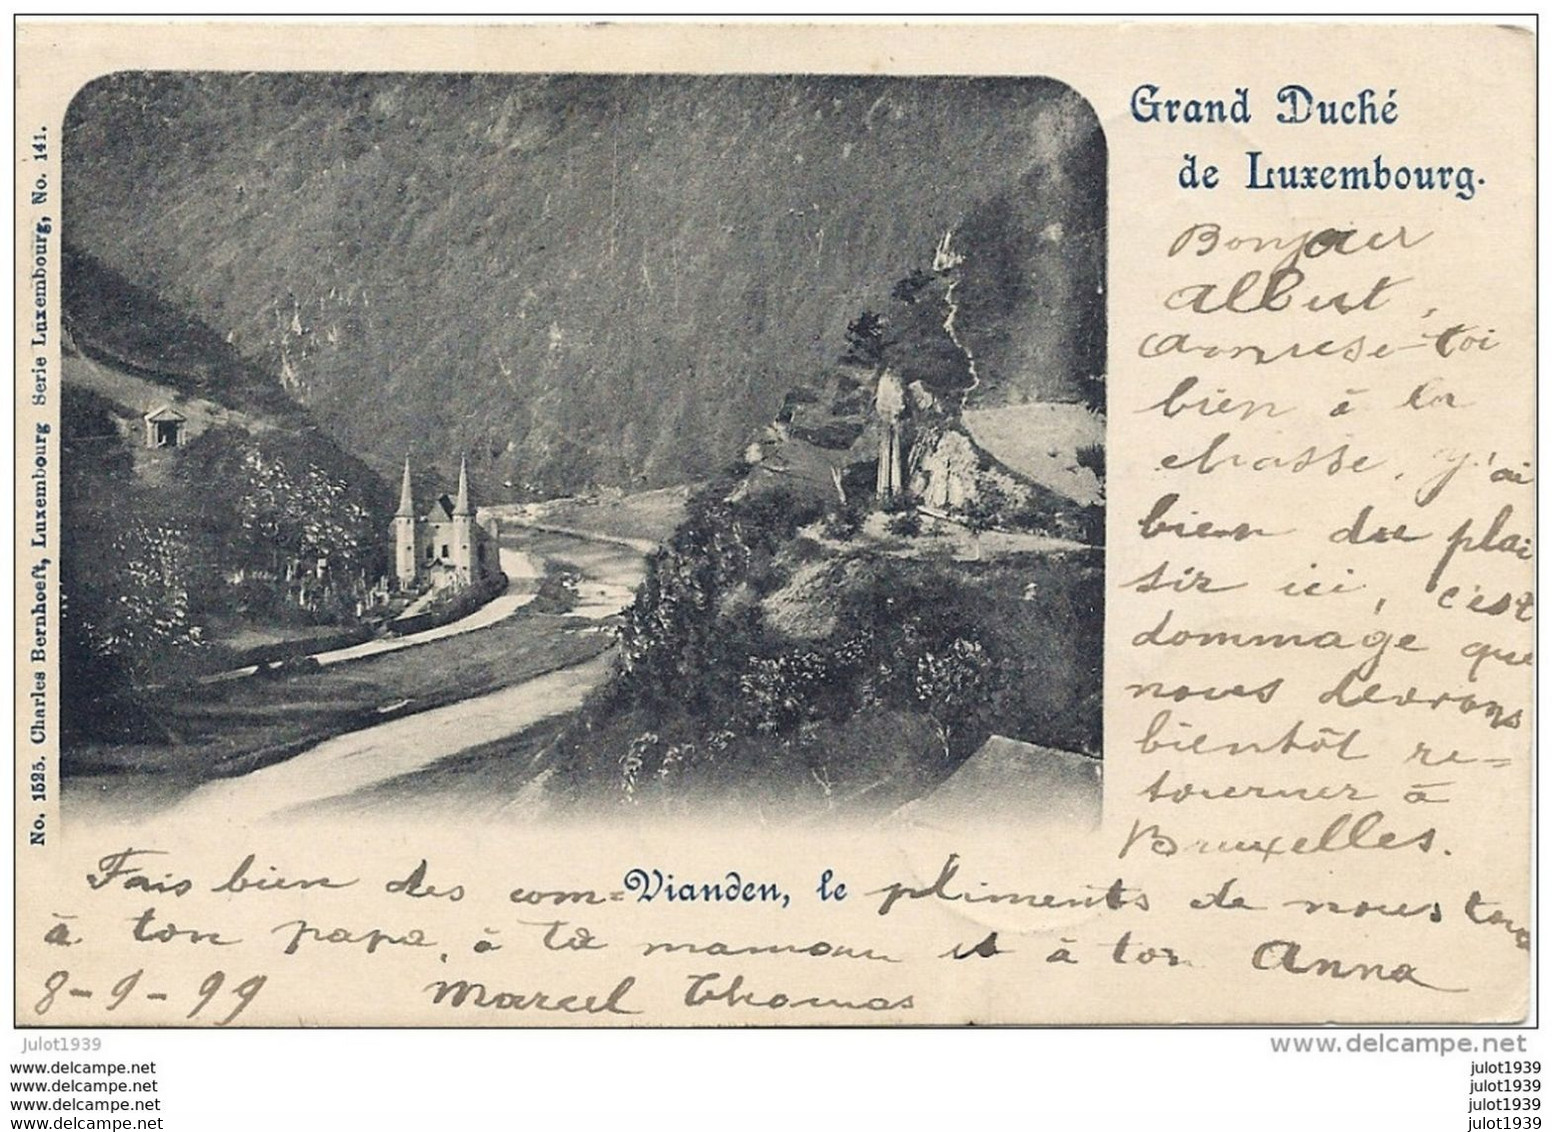 Grand Duché
de Luxembourg.
Bonjour
Albert,
amuse-toi
bien à la
chasse, j'ai
bien du plai
sir ici, c'est
dommage que
nous devrons
bientôt re=
tourner à
Bruxelles.
Fais bien des com=Vianden, le pliments de nous tous
à ton papa, à ta maman et à ton Anna
8-9-99 Marcel Thomas
No. 1525. Charles Bernhoeft, Luxembourg Serie Luxembourg, No. 141.
julot1939
www.delcampe.net
www.delcampe.net
www.delcampe.net
www.delcampe.net
www.delcampe.net
julot1939
julot1939
julot1939
julot1939